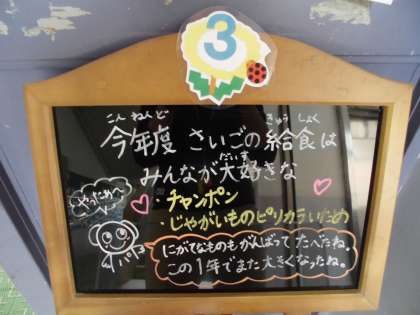 3
こん ねんど きゅう しょく
今年度 さいごの給食は
だいす
みんなが大好きな
・チャンポン
・じゃがいものピリカラいため
やったあ〜
にがてなものもがんばってたべたね。
この1年でまた大きくなったね。